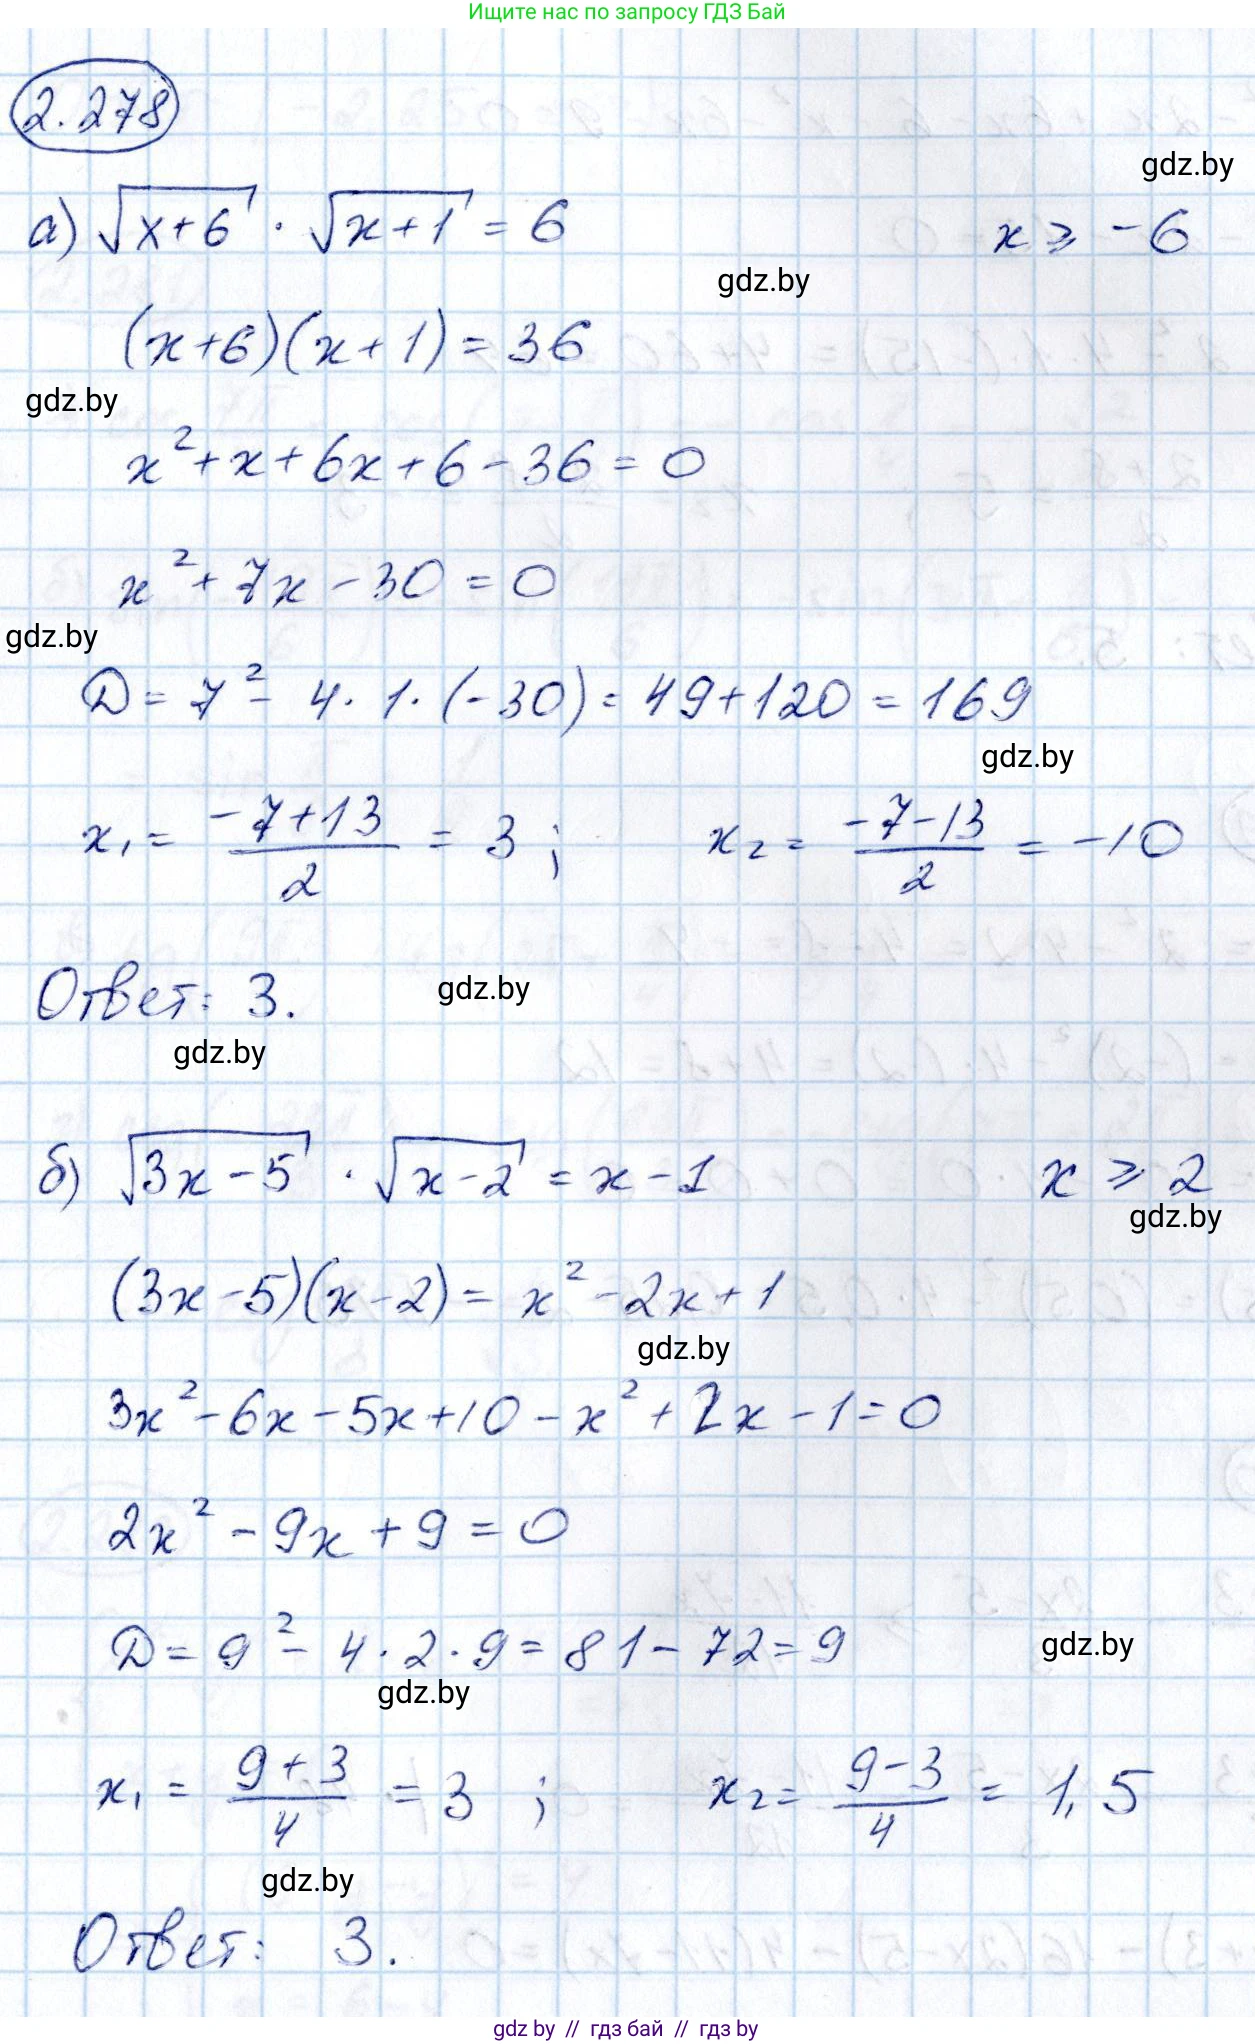 Ищите нас по запросу ГДЗ Бай
2.278
gdz.by
а) √(x+6) · √(x+1) = 6 x ⩾ -6
gdz.by
(x+6)(x+1) = 36
gdz.by
x² + x + 6x + 6 - 36 = 0
x² + 7x - 30 = 0
gdz.by
D = 7² - 4 · 1 · (-30) = 49 + 120 = 169
gdz.by
x₁ = (-7+13)/2 = 3 ; x₂ = (-7-13)/2 = -10
Ответ: 3.
gdz.by
gdz.by
б) √(3x-5) · √(x-2) = x - 1 x ⩾ 2
gdz.by
(3x-5)(x-2) = x² - 2x + 1
gdz.by
3x² - 6x - 5x + 10 - x² + 2x - 1 = 0
2x² - 9x + 9 = 0
D = 9² - 4 · 2 · 9 = 81 - 72 = 9
gdz.by
gdz.by
x₁ = (9+3)/4 = 3 ; x₂ = (9-3)/4 = 1,5
gdz.by
Ответ: 3.
gdz by // гдз бай // гдз by